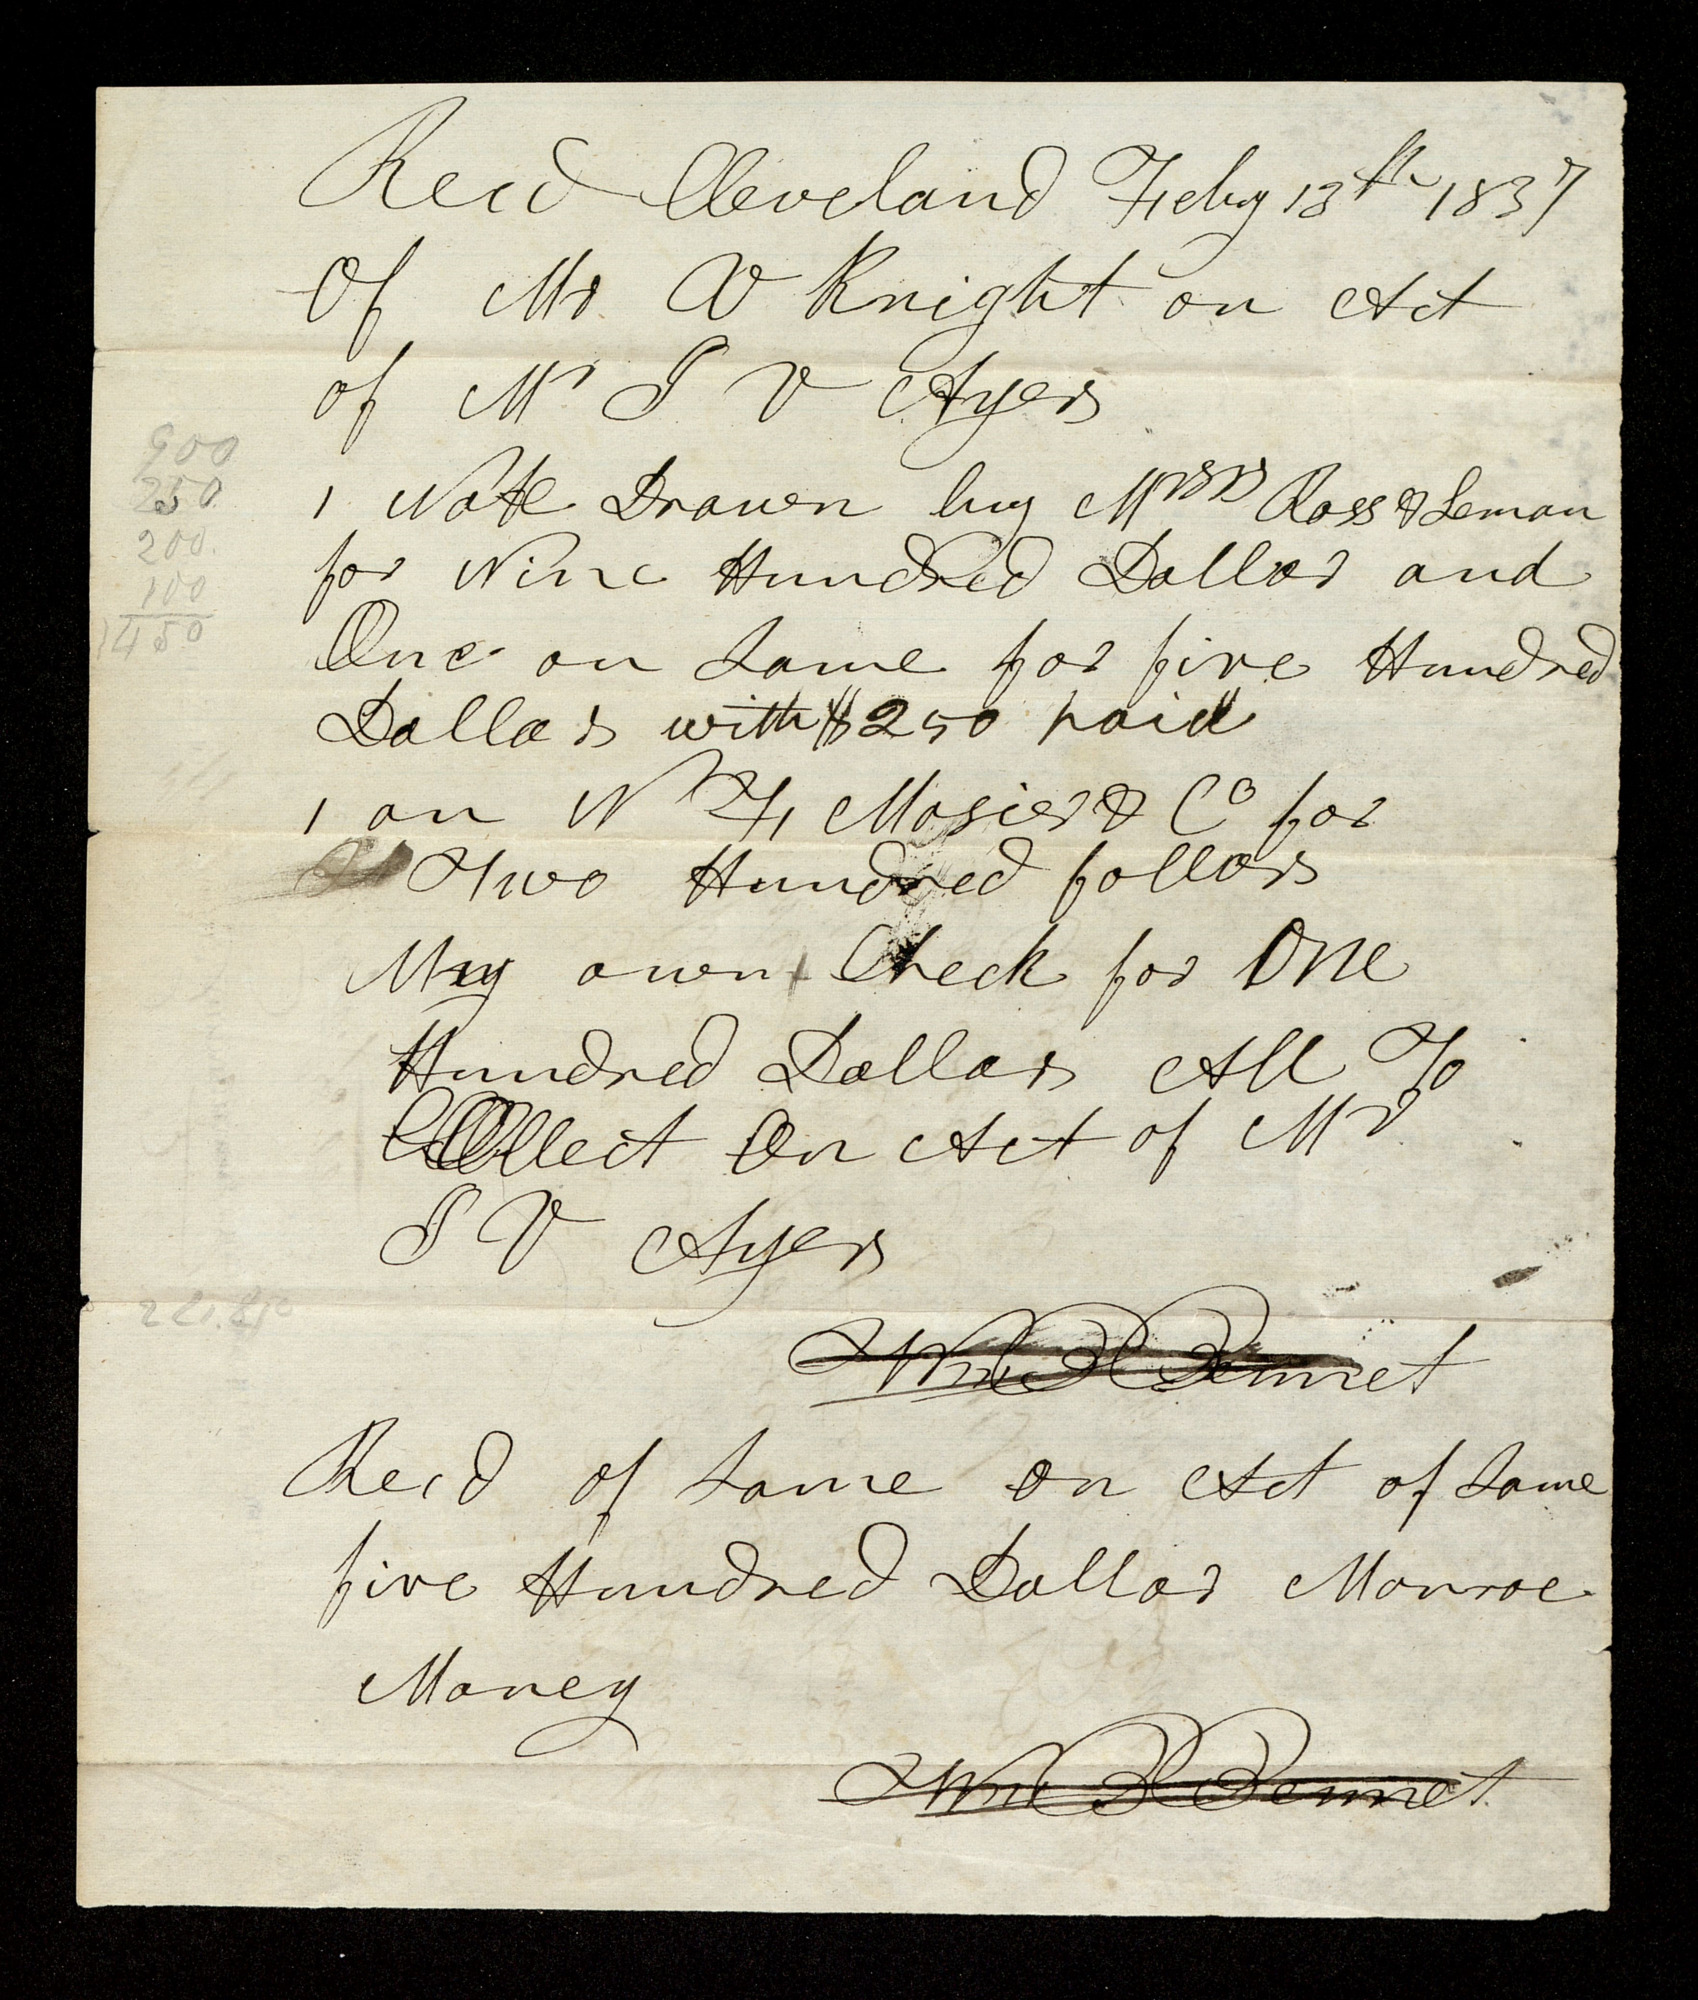 Recd Cleveland Feby 13th 1837
Of Mr V Knight on Act
of Mr S V Ayers
1 Note Drawn by Mrssrs Ross & Leman
for Nine Hundred Dollars and
One on Same for five Hundred
Dollars with $250 paid
1 on N F Mosier & Co for
Two Hundred follars
My own Check for One
Hundred Dollars All To
Collect On Act of Mr
S V Ayers
Wm B Bennet
Recd of Same on Act of Same
five Hundred Dollars Monroe
Money
Wm B Bennet
900
250
200.
100
1450